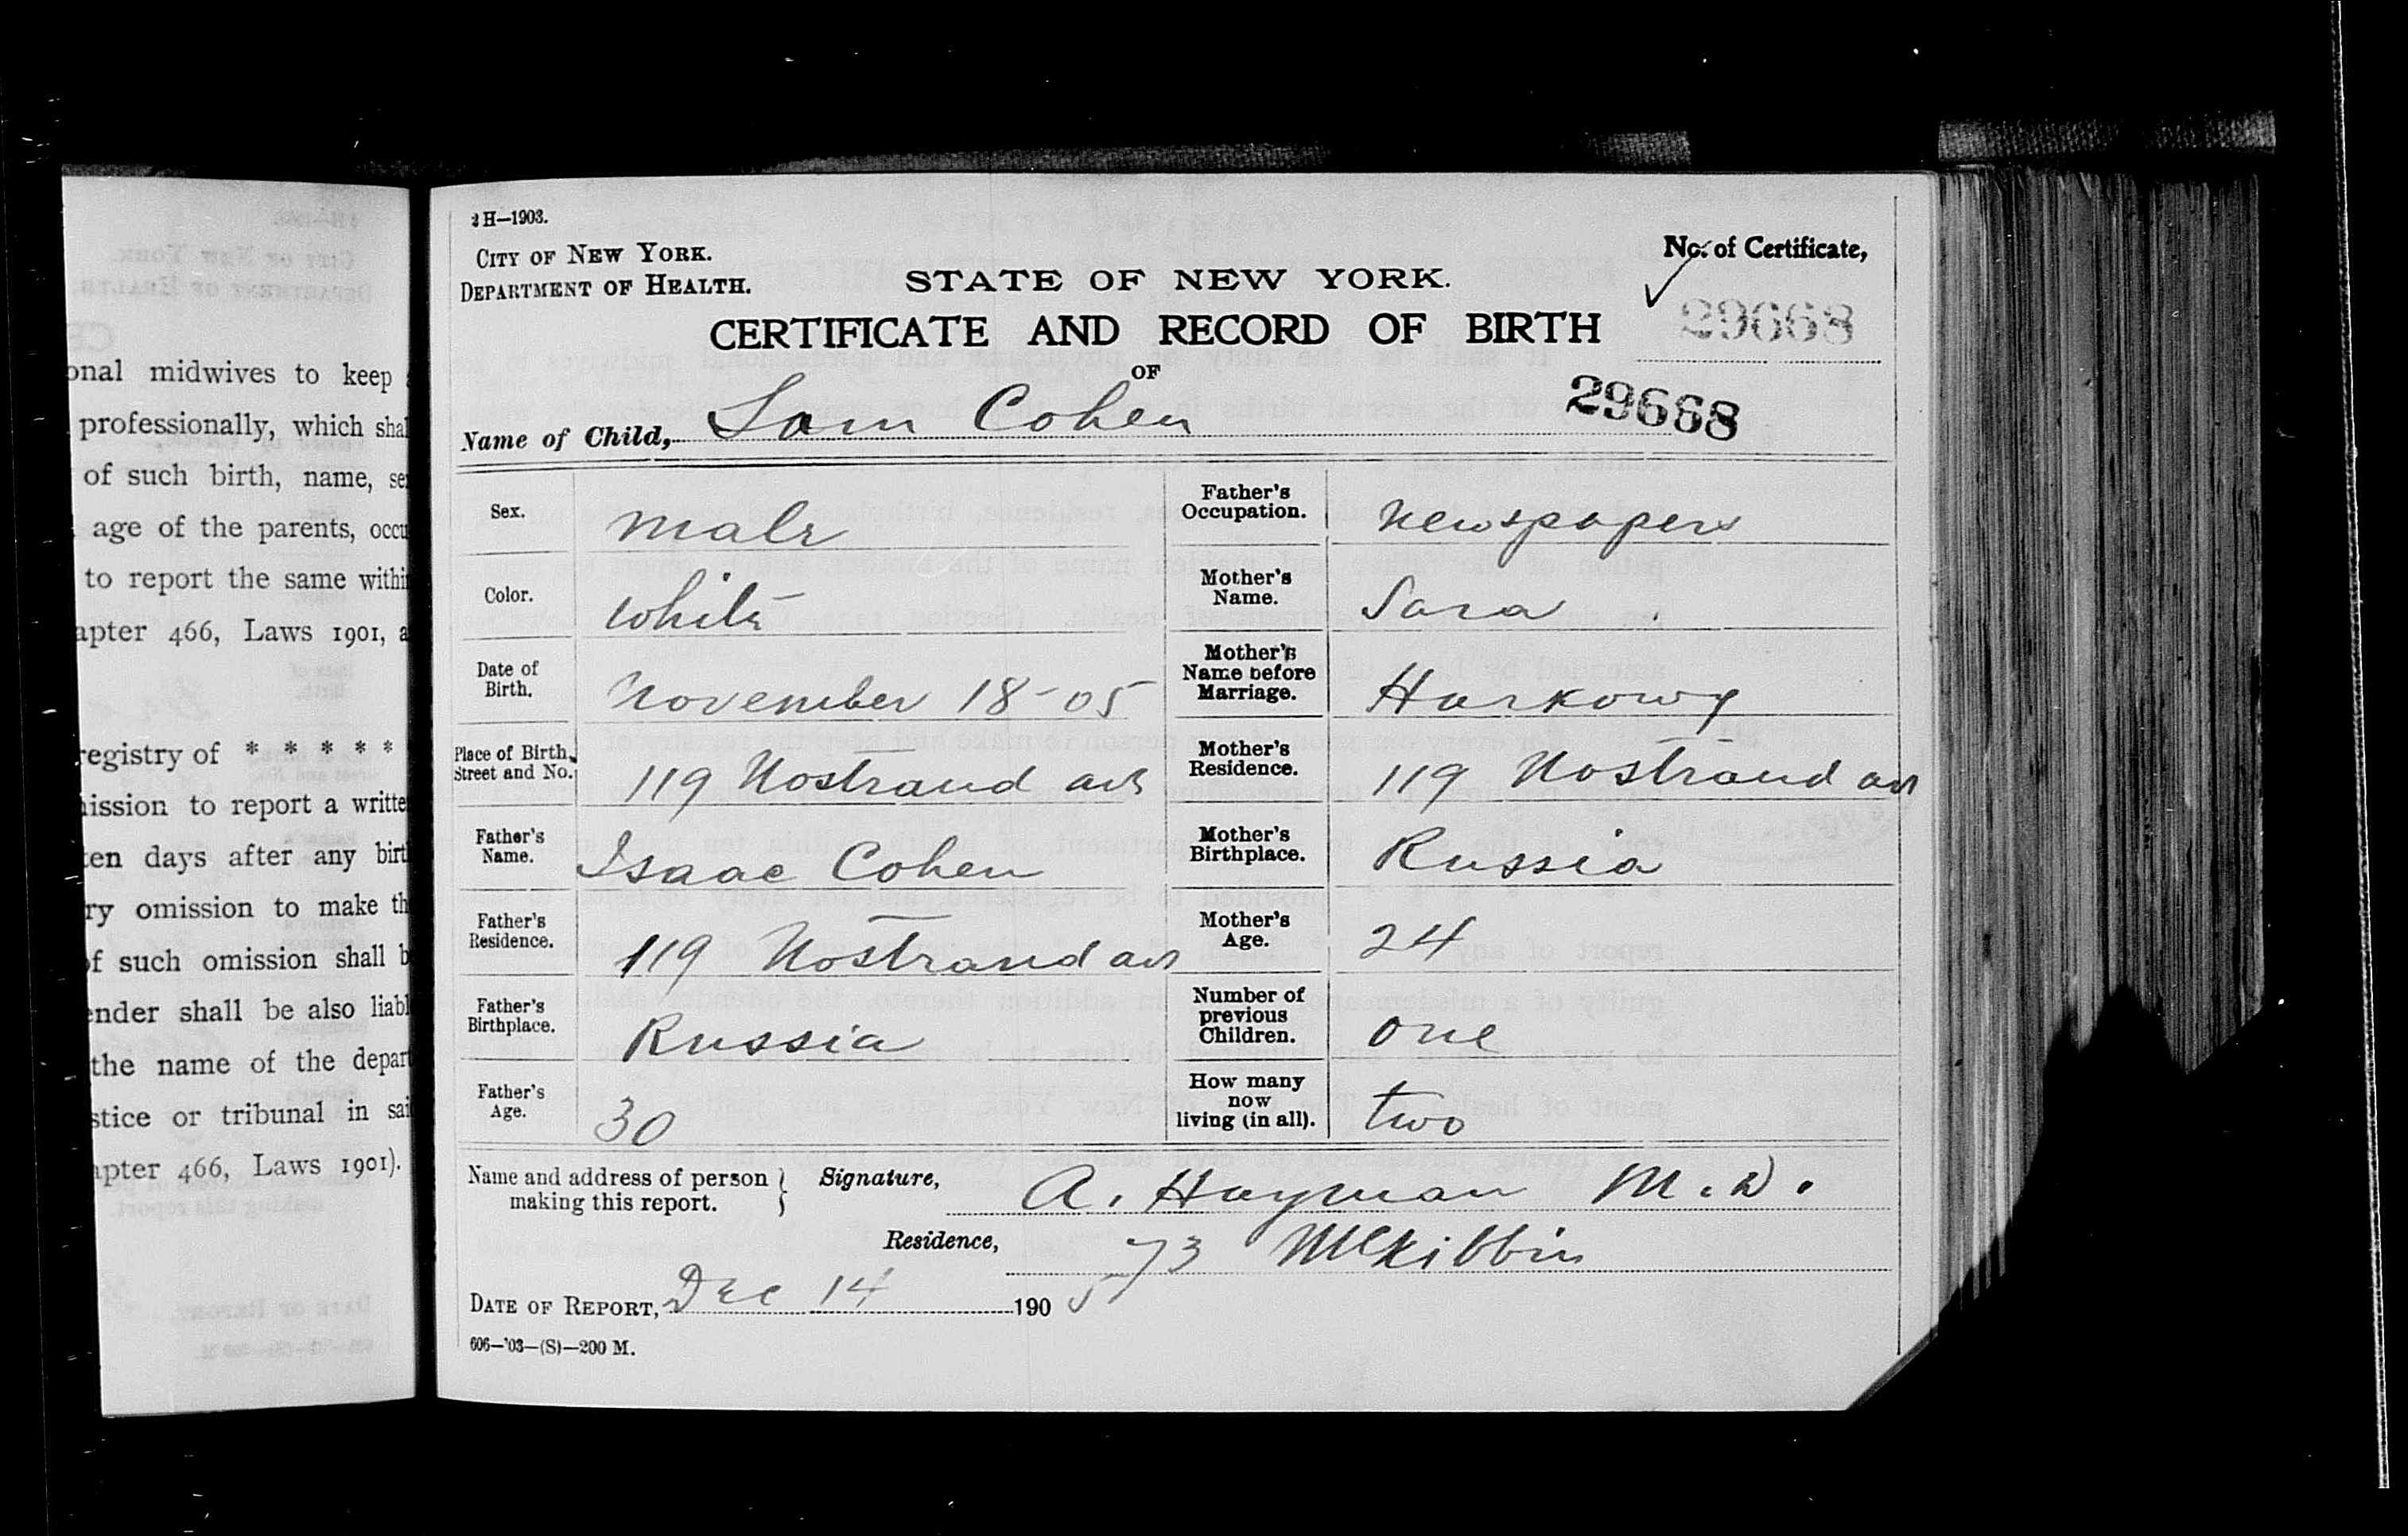 onal midwives to keep
professionally, which shal
of such birth, name, se
age of the parents, occu
to report the same withi
apter 466, Laws 1901, a
registry of * * * * *
ission to report a writte
ten days after any birt
ry omission to make th
of such omission shall b
ender shall be also liabl
the name of the depart
stice or tribunal in sai
apter 466, Laws 1901).
2 H—1903.
CITY OF NEW YORK.
DEPARTMENT OF HEALTH.
STATE OF NEW YORK.
No. of Certificate,
29668
CERTIFICATE AND RECORD OF BIRTH
OF
29668
Name of Child, Sam Cohen
Sex. Male
Color. White
Date of Birth. November 18-05
Place of Birth, Street and No. 119 Nostrand ave
Father's Name. Isaac Cohen
Father's Residence. 119 Nostrand ave
Father's Birthplace. Russia
Father's Age. 30
Father's Occupation. Newspapers
Mother's Name. Sara
Mother's Name before Marriage. Harkowy
Mother's Residence. 119 Nostrand ave
Mother's Birthplace. Russia
Mother's Age. 24
Number of previous Children. one
How many now living (in all). two
Name and address of person making this report. } Signature, A. Hayman M.D.
Residence, 73 McKibbin
DATE OF REPORT, Dec 14 1905
606—'03—(S)—200 M.